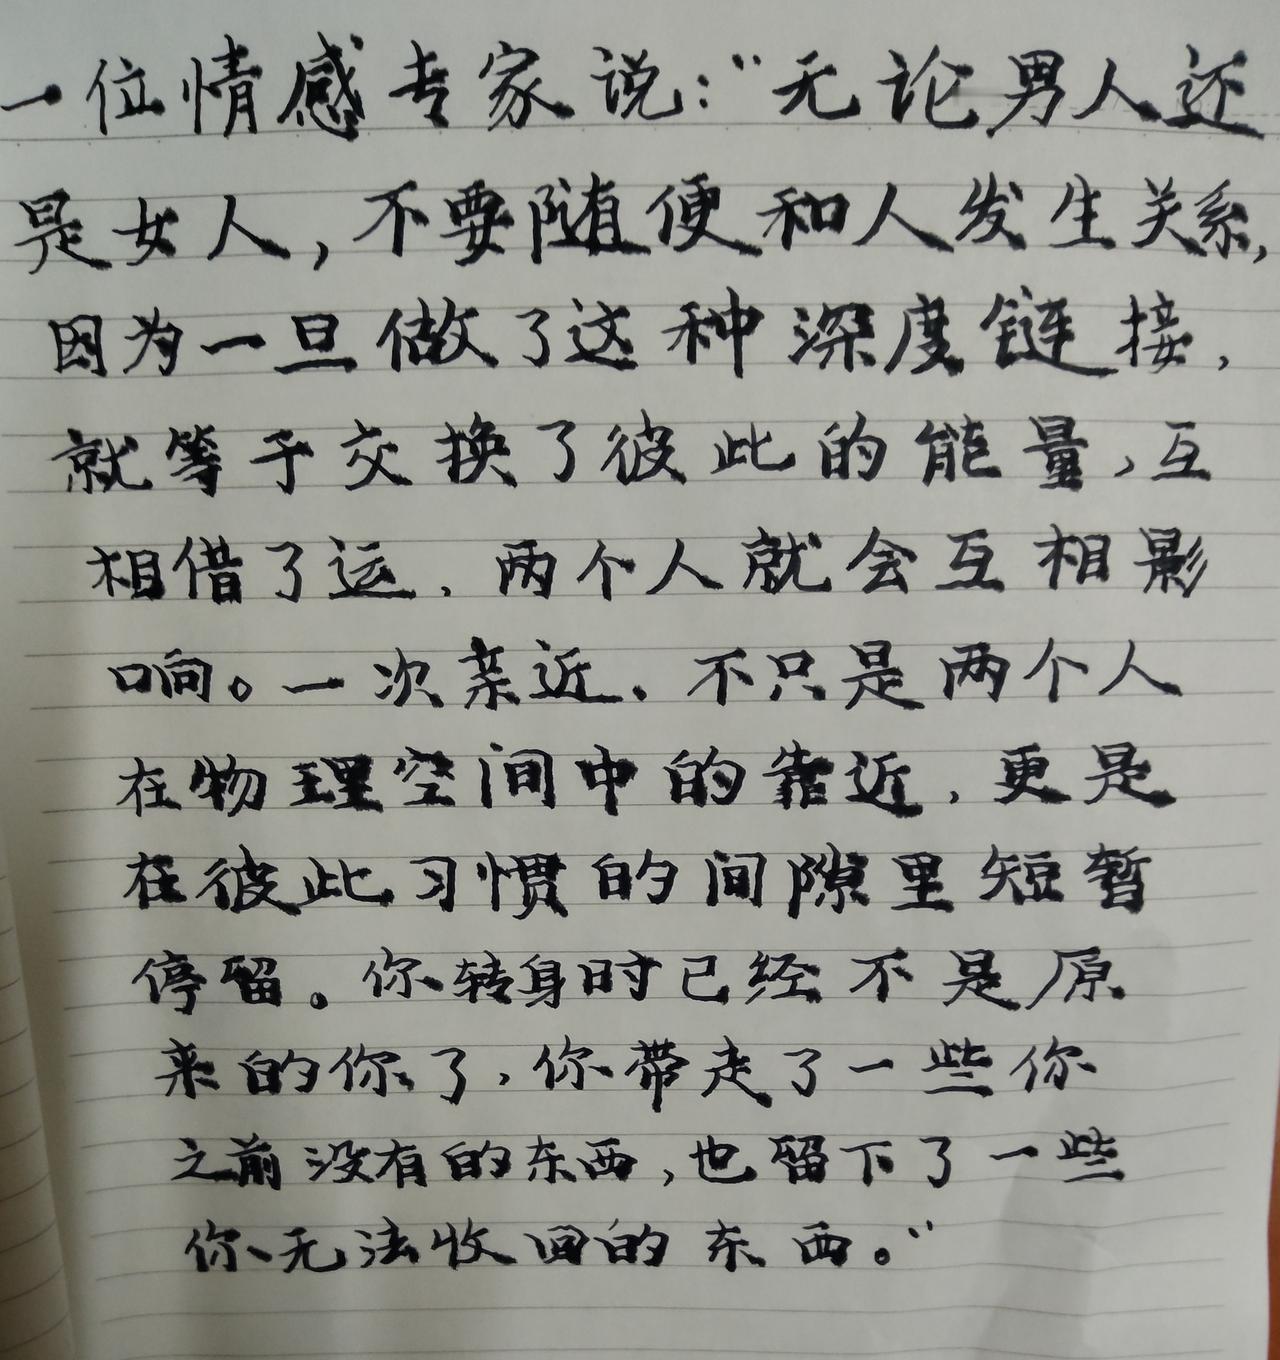 一位情感专家说：“无论男人还
是女人，不要随便和人发生关系，
因为一旦做了这种深度链接，
就等于交换了彼此的能量，互
相借了运，两个人就会互相影
响。一次亲近，不只是两个人
在物理空间中的靠近，更是
在彼此习惯的间隙里短暂
停留。你转身时已经不是原
来的你了，你带走了一些你
之前没有的东西，也留下了一些
你无法收回的东西。”